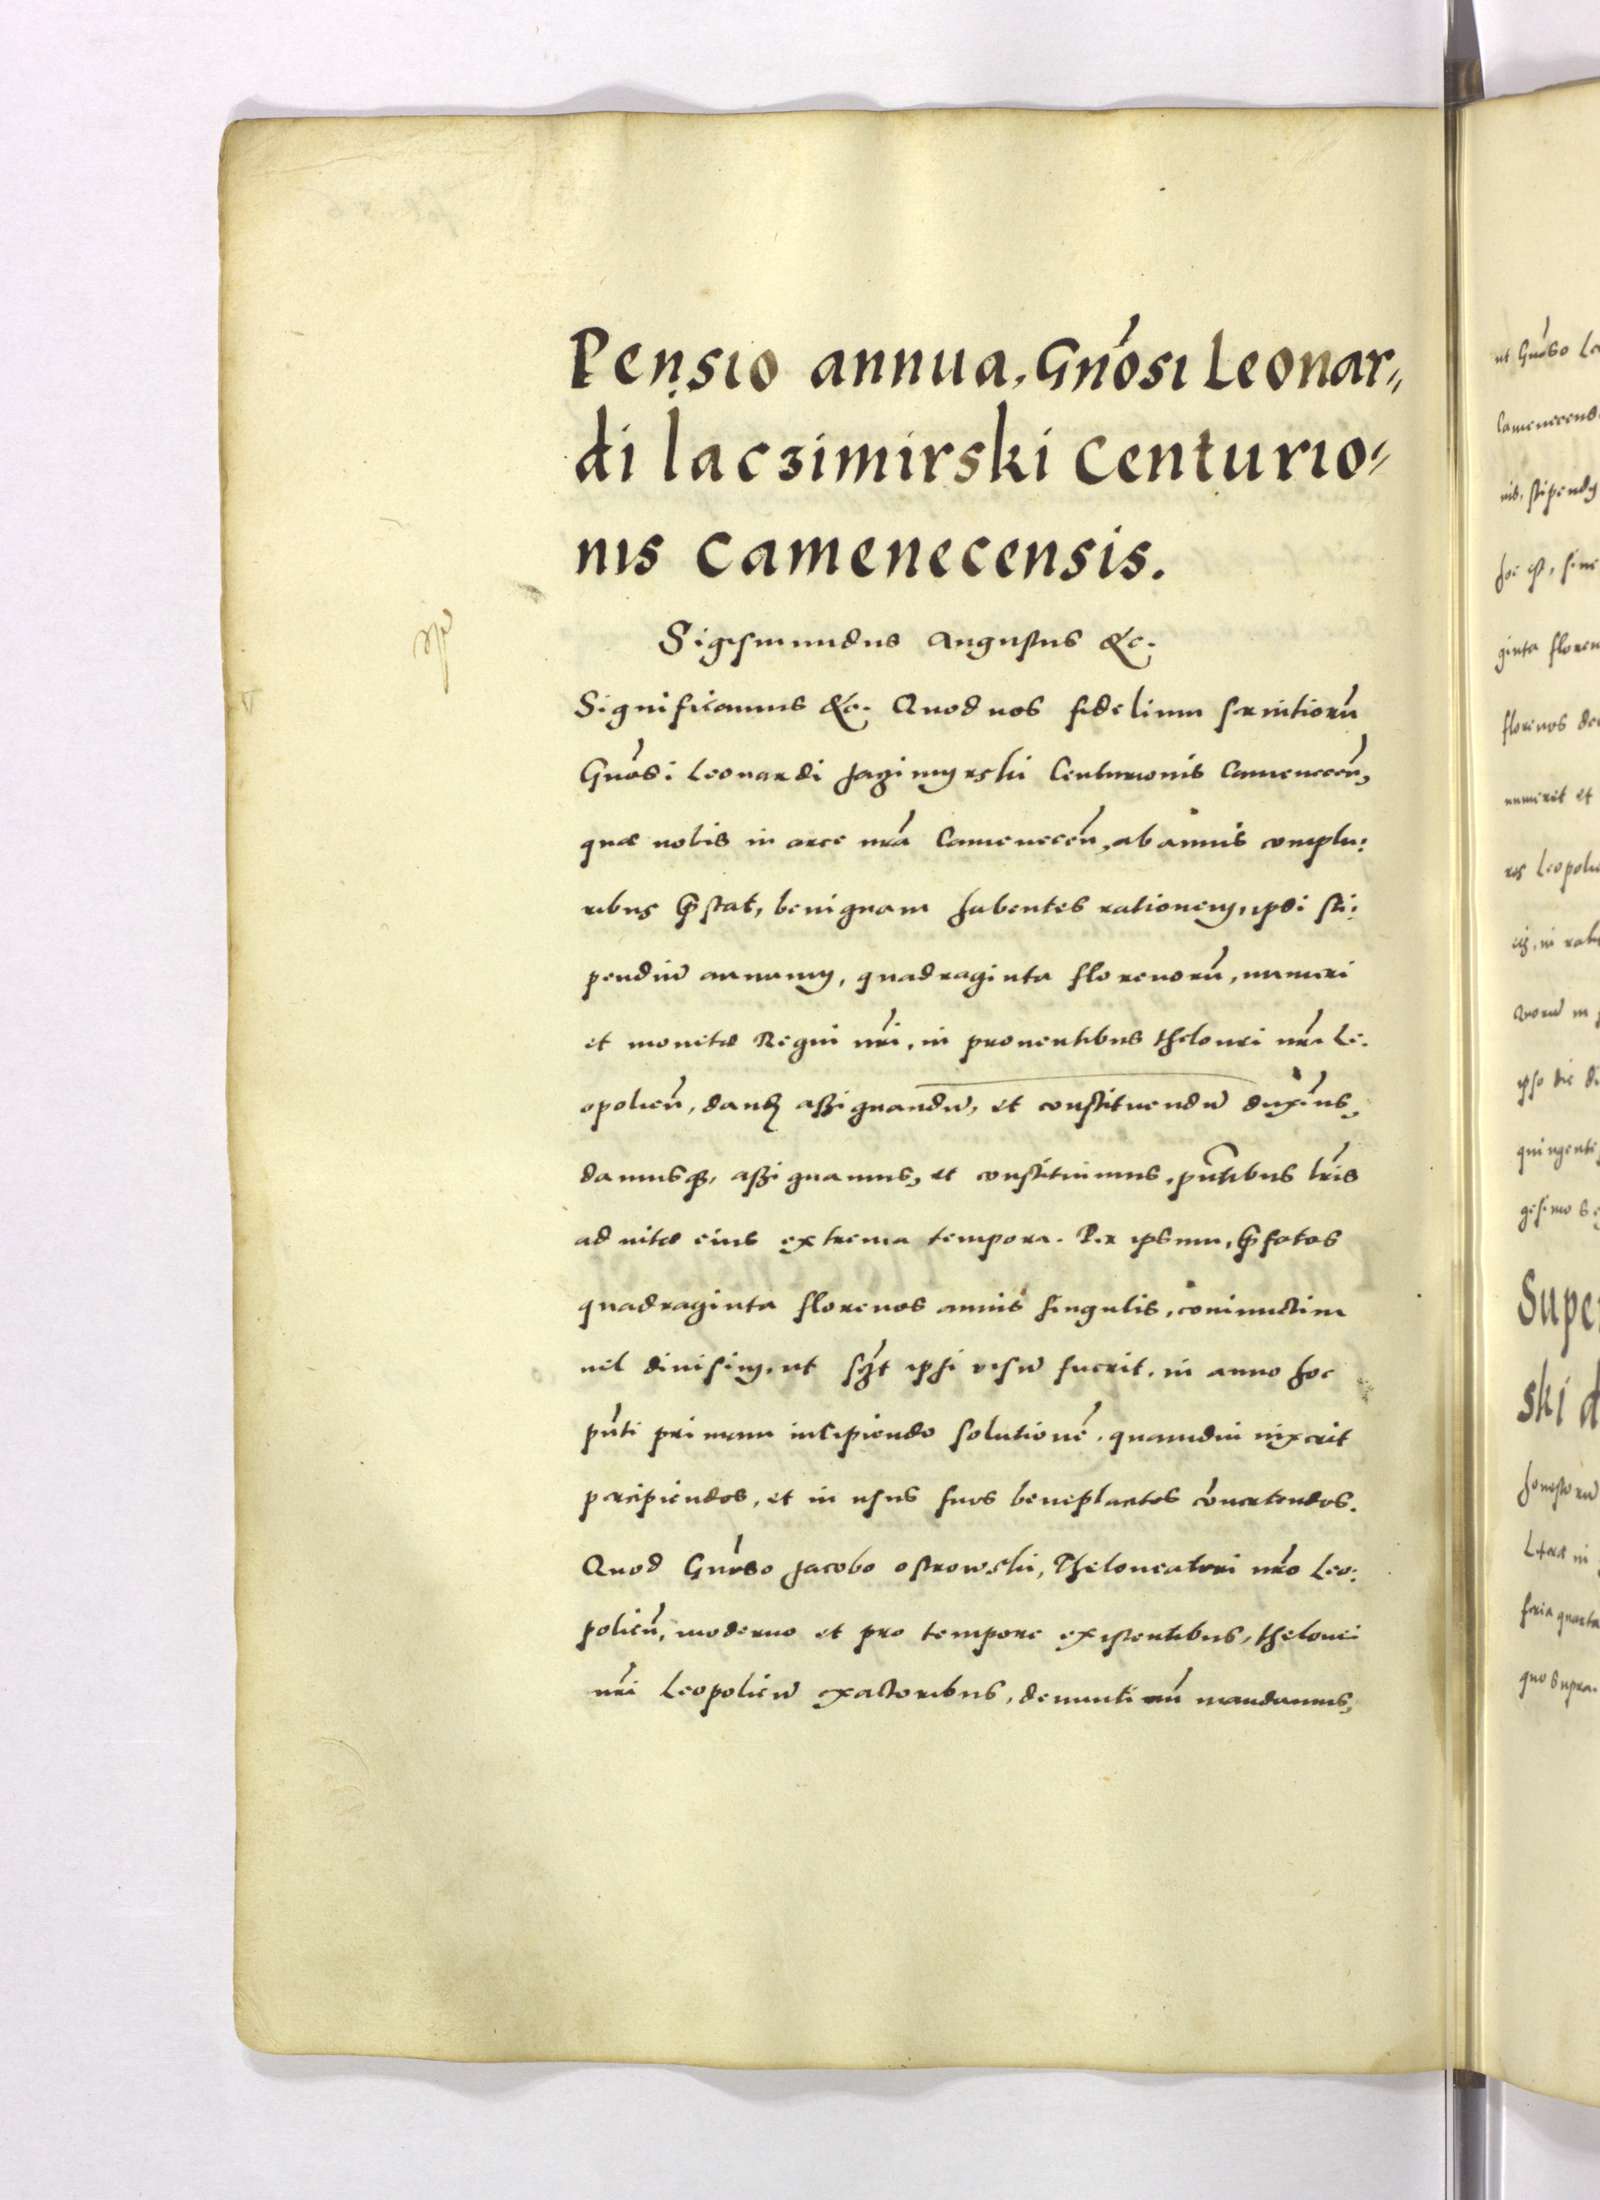 Pensio annua, Gnosi Leonar„
di laczimirski Centurio„
nis Camenecensis.
Sigismundus Augustus &c.
Significamus &c. Quod nos fidelium servitiorũ
Gnosi Leonardi Jazimyrski Centurionis Camenecen̄,
quæ nobis in arce nrã Camenecen̄, ab annis complu:
ribus p̃stat, benignam habentes rationem, ipsi sti:
pendiũ annuum, quadraginta florenorũ, numeri
et monetæ Regni nrĩ, in proventibus thelonei nrĩ Le:
opolien̄, dandũ assignandũ, et constituendũ duximus,
damusq̃, assignamus, et constituimus, pñtibus lrĩs
ad vitæ eius extrema tempora. Per ipsum, p̃fatos
quadraginta florenos annis singulis, coniunctim
vel divisim, ut ipsi visũ fuerit, in anno hoc
pñti primam incipiendo solutionẽ, quamdiu vixerit
percipiendos, et in usus suos beneplacitos cõvertendos.
Quod Gnoso Jacobo ostrowski, Theloneatori nrõ Leo:
polien̄, moderno et pro tempore existentibus, thelonei
nrĩ Leopolieñ exactoribus, mandamus,
ut Gnoso Le
Camenecens
nis, stipendy
hoc est, sine
ginta floren
florenos
numerit et
Leopolie
in
Quorũ in
ipso die
quingente
gesimo
Supe
ski d
honestorũ
in
feria quarta
quo supra.